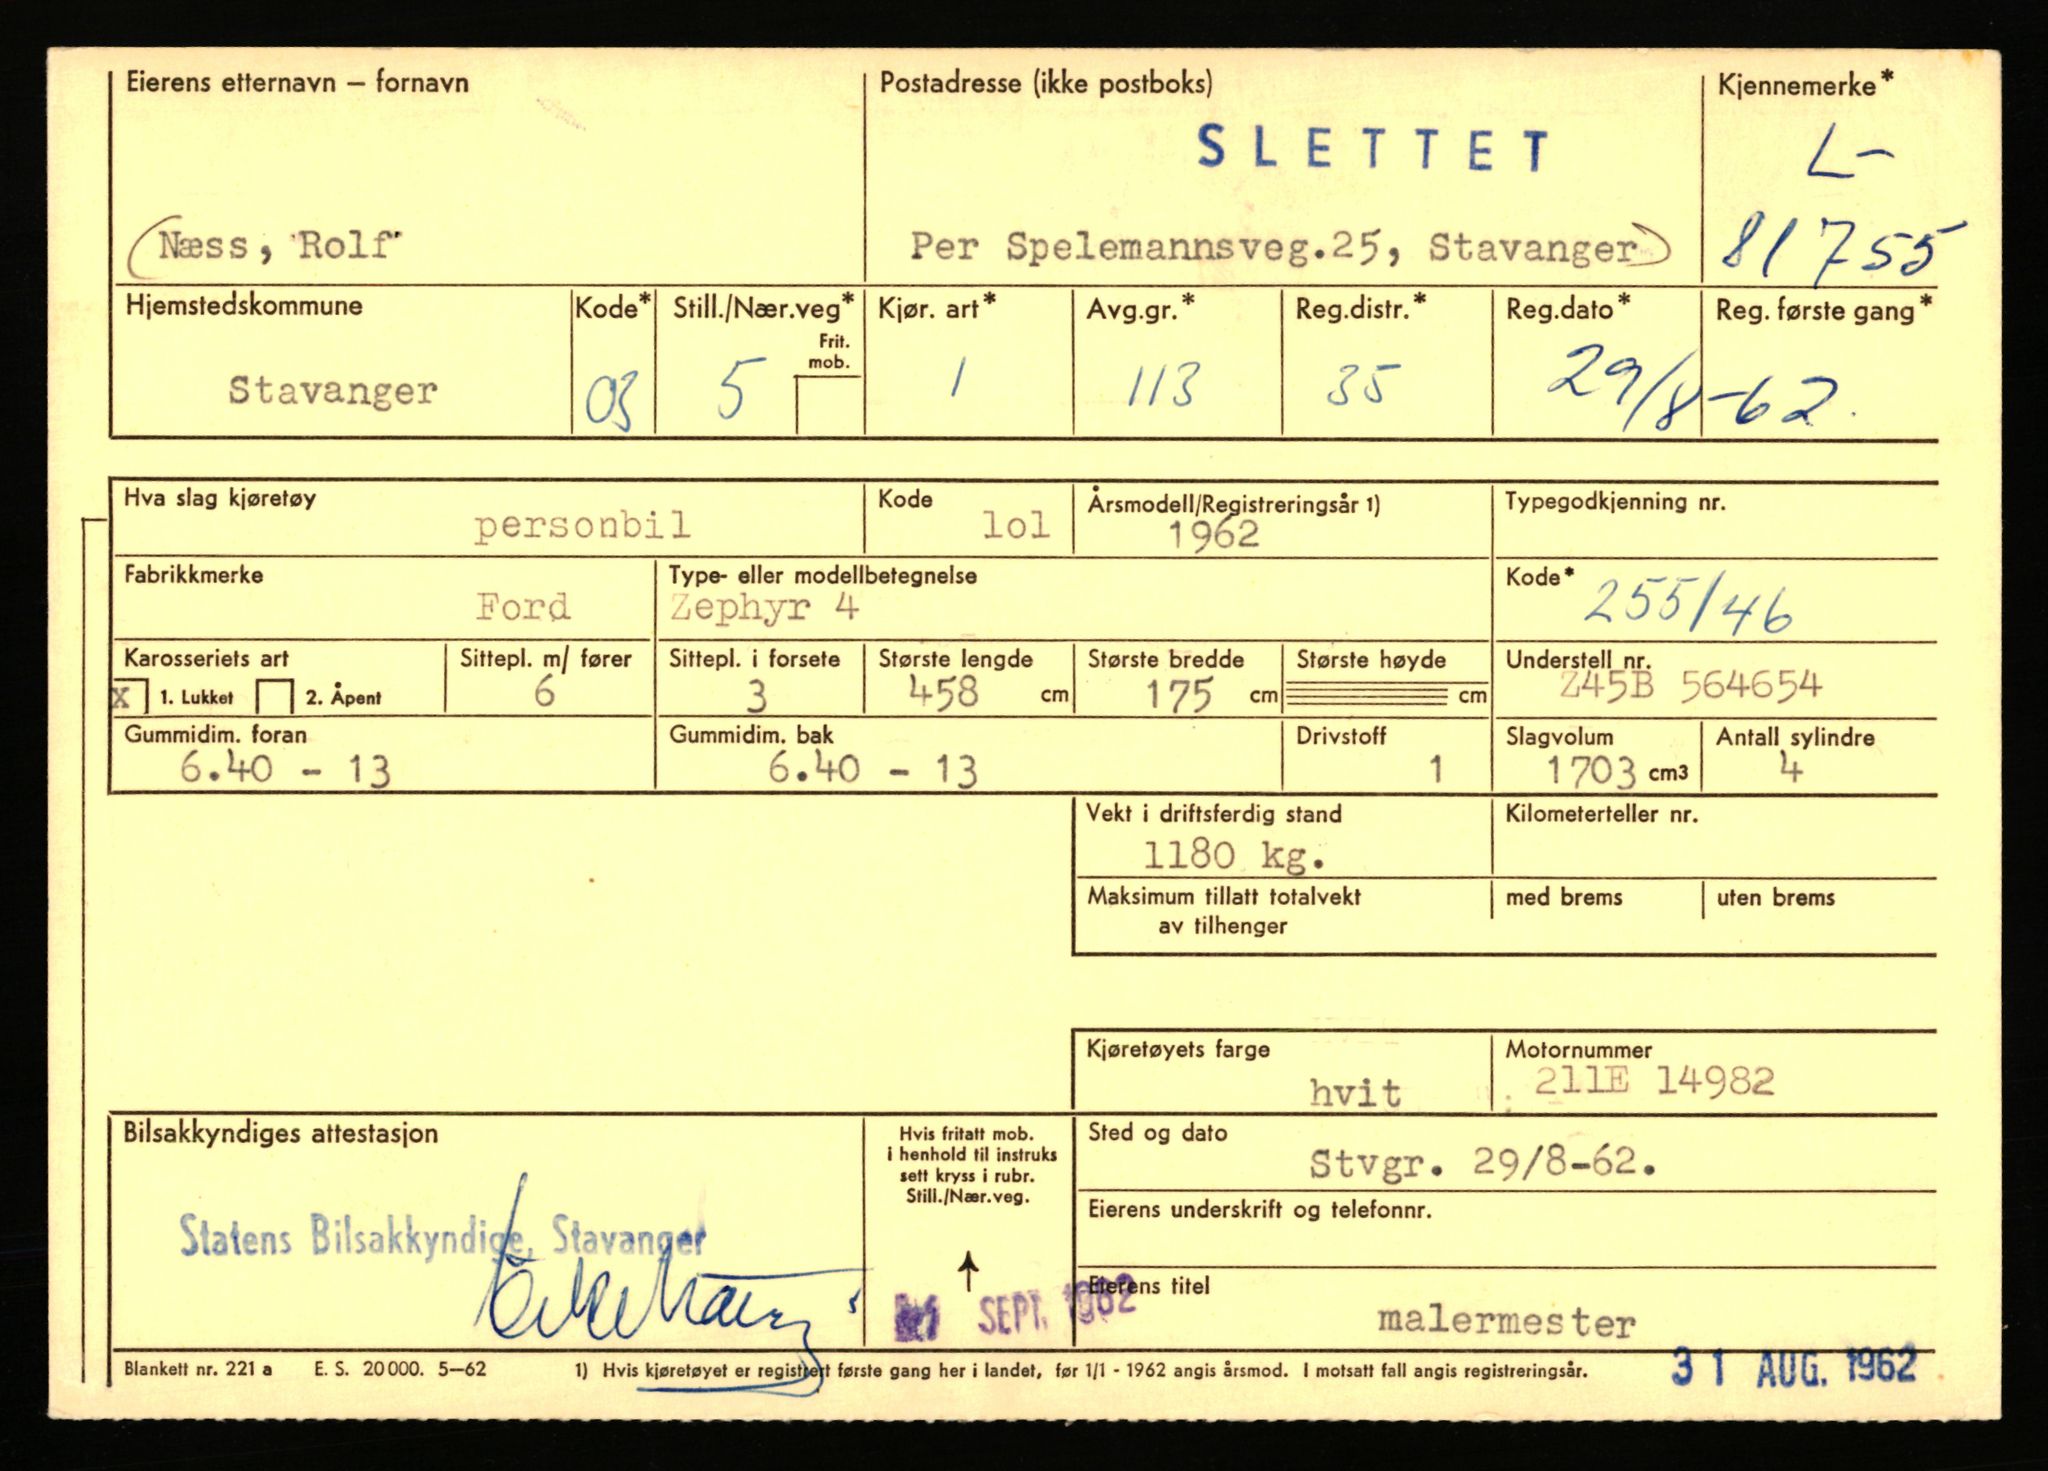 Eierens etternavn – fornavn Postadresse (ikke postboks) Kjennemerke*
SLETTET L-
Næss, Rolf Per Spelemannsveg.25, Stavanger 81755
Hjemstedskommune Kode* Still./Nær.veg* Kjør. art* Avg.gr.* Reg.distr.* Reg.dato* Reg. første gang*
Frit.
mob.
Stavanger 03 5 1 113 35 29/8-62.
Hva slag kjøretøy Kode Årsmodell/Registreringsår 1) Typegodkjenning nr.
personbil lol 1962
Fabrikkmerke Type- eller modellbetegnelse Kode*
Ford Zephyr 4 255/46
Karosseriets art Sittepl. m/ fører Sittepl. i forsete Største lengde Største bredde Største høyde Understell nr.
x 1. Lukket 2. Åpent 6 3 458 cm 175 cm cm Z45B 564654
Gummidim. foran Gummidim. bak Drivstoff Slagvolum Antall sylindre
6.40 - 13 6.40 - 13 1 1703 cm3 4
Vekt i driftsferdig stand Kilometerteller nr.
1180 kg.
Maksimum tillatt totalvekt med brems uten brems
av tilhenger
Kjøretøyets farge Motornummer
hvit 211E 14982
Bilsakkyndiges attestasjon Hvis fritatt mob. Sted og dato
i henhold til instruks
sett kryss i rubr. Stvgr. 29/8-62.
Still./Nær.veg.
Eierens underskrift og telefonnr.
Statens Bilsakkyndige, Stavanger
Eierens titel
SEPT. 1962 malermester
Blankett nr. 221 a E. S. 20000. 5–62 1) Hvis kjøretøyet er registrert første gang her i landet, før 1/1 - 1962 angis årsmod. I motsatt fall angis registreringsår. 31 AUG. 1962